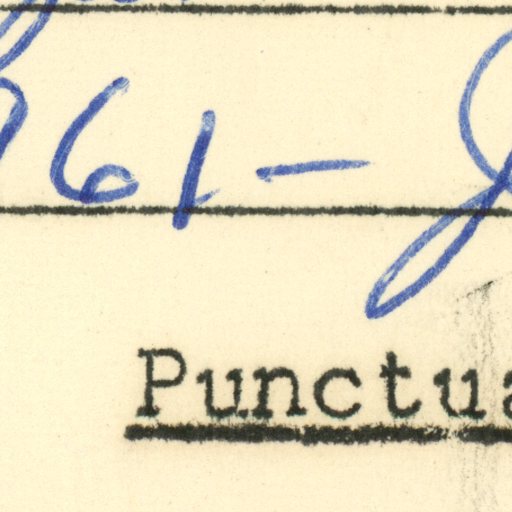 61 – J
Punctua